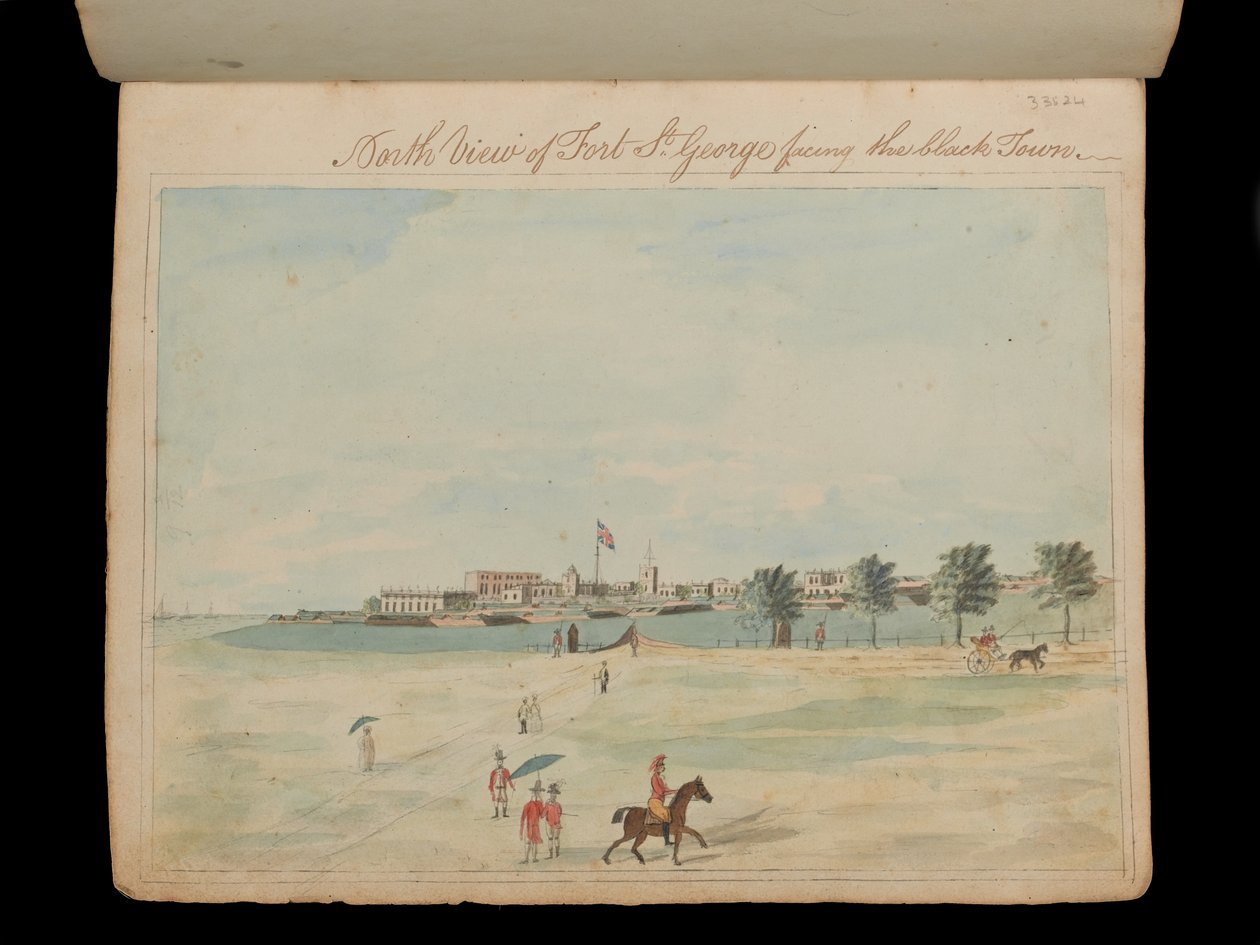 33624
North View of Fort St. George facing the black Town